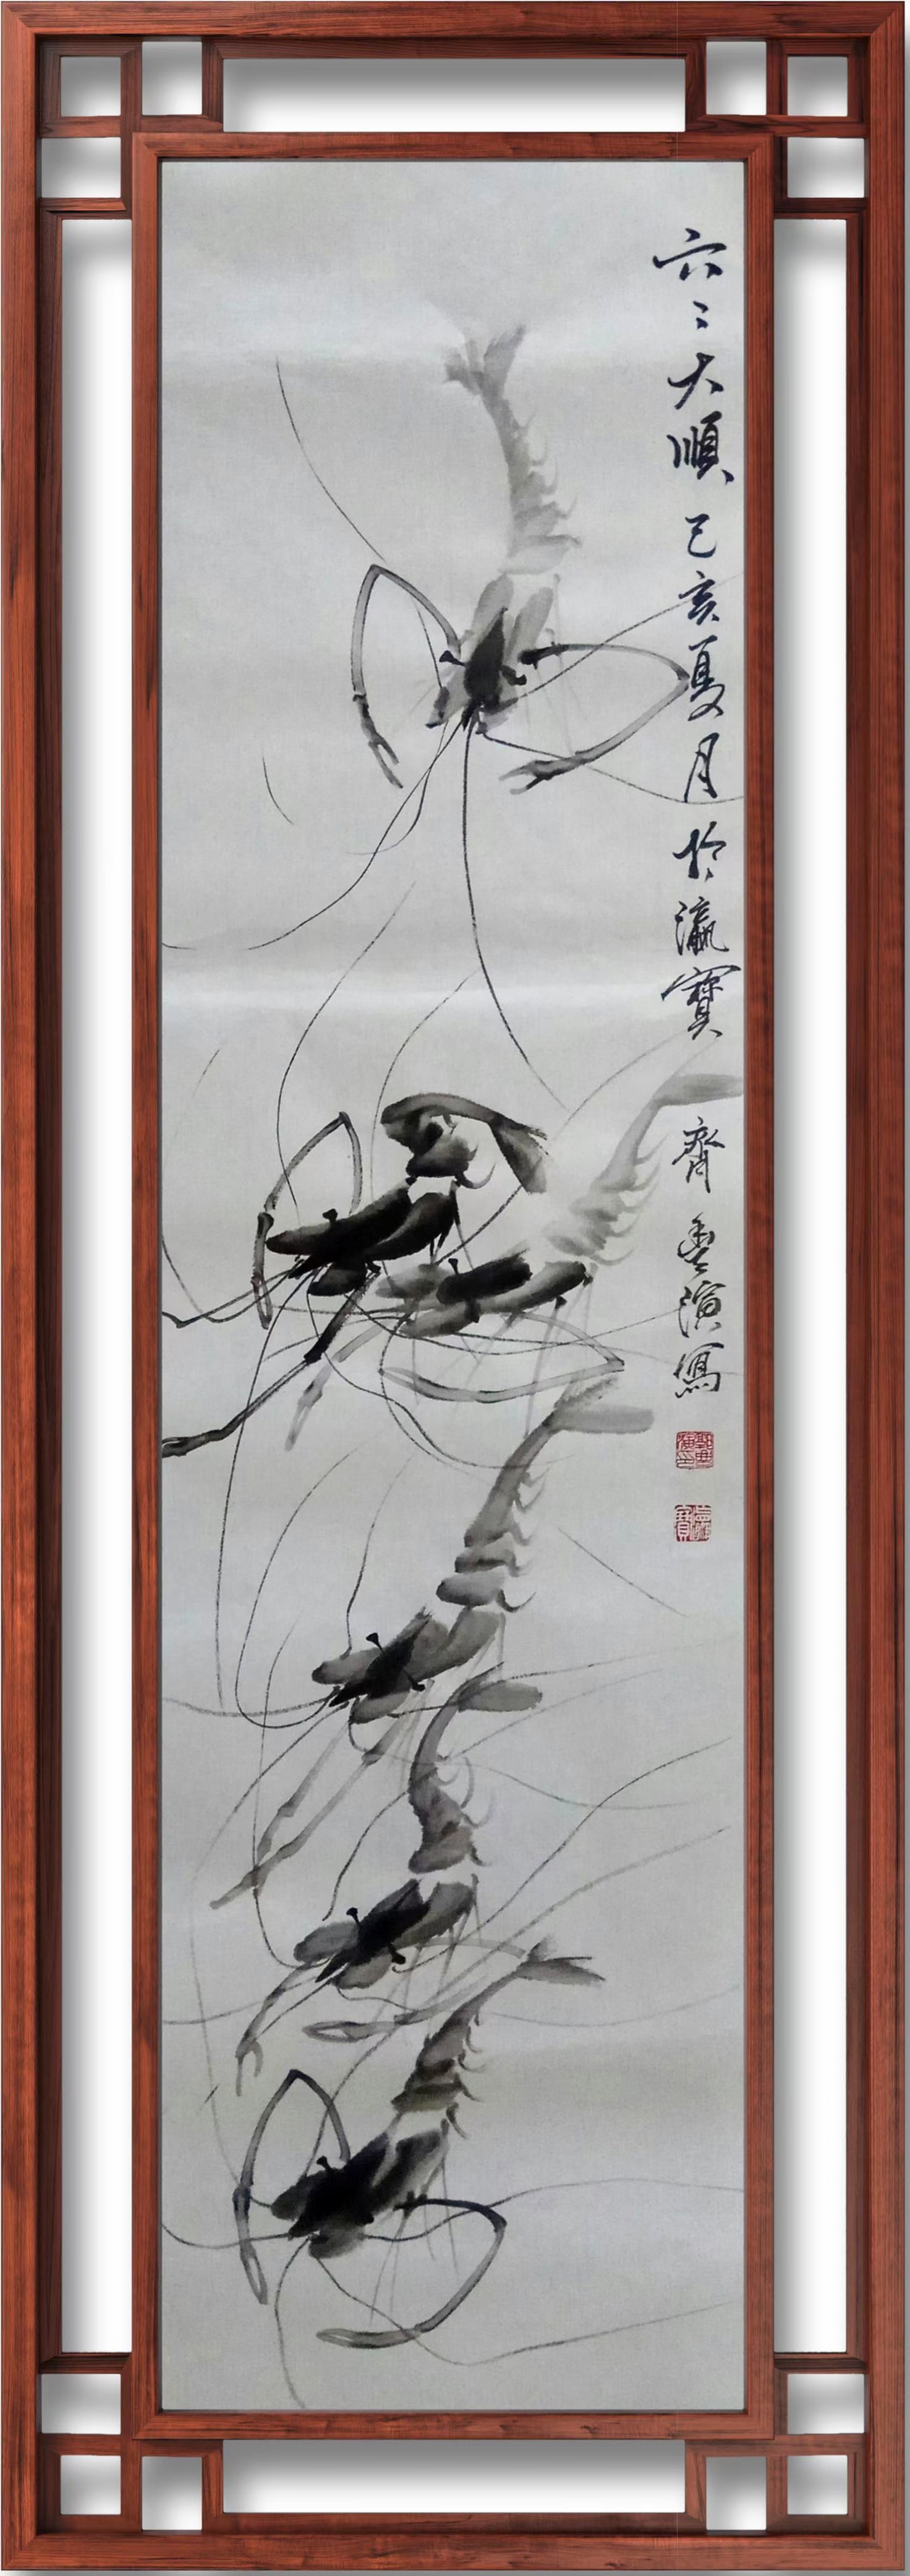 六〻大順己亥夏月於瀛寶齊墨演寫